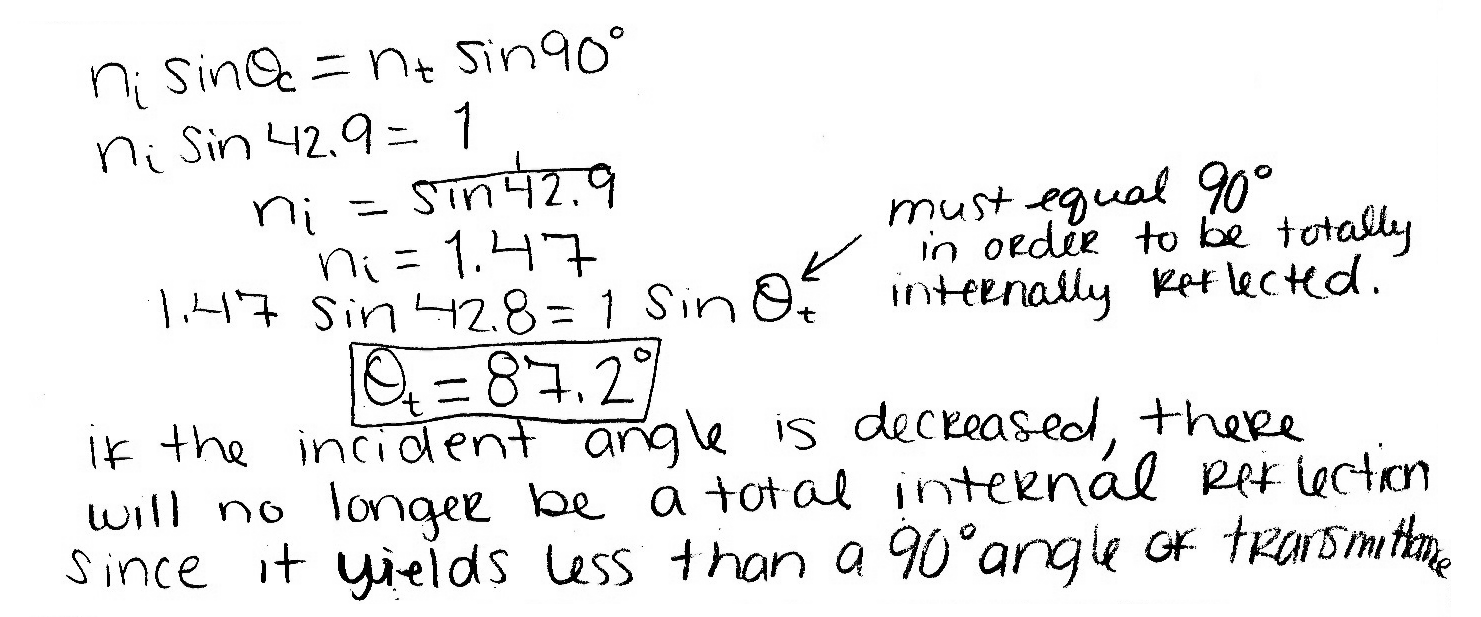 nᵢ sinθc = nt sin90°
nᵢ sin 42.9 = 1
nᵢ = 1/sin42.9
nᵢ = 1.47
1.47 sin 42.8 = 1 sin θt
must equal 90°
in order to be totally
internally reflected.
θt = 87.2°
if the incident angle is decreased, there
will no longer be a total internal reflection
since it yields less than a 90° angle of